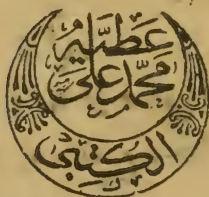 عطيه
محمد علي
الكتبى